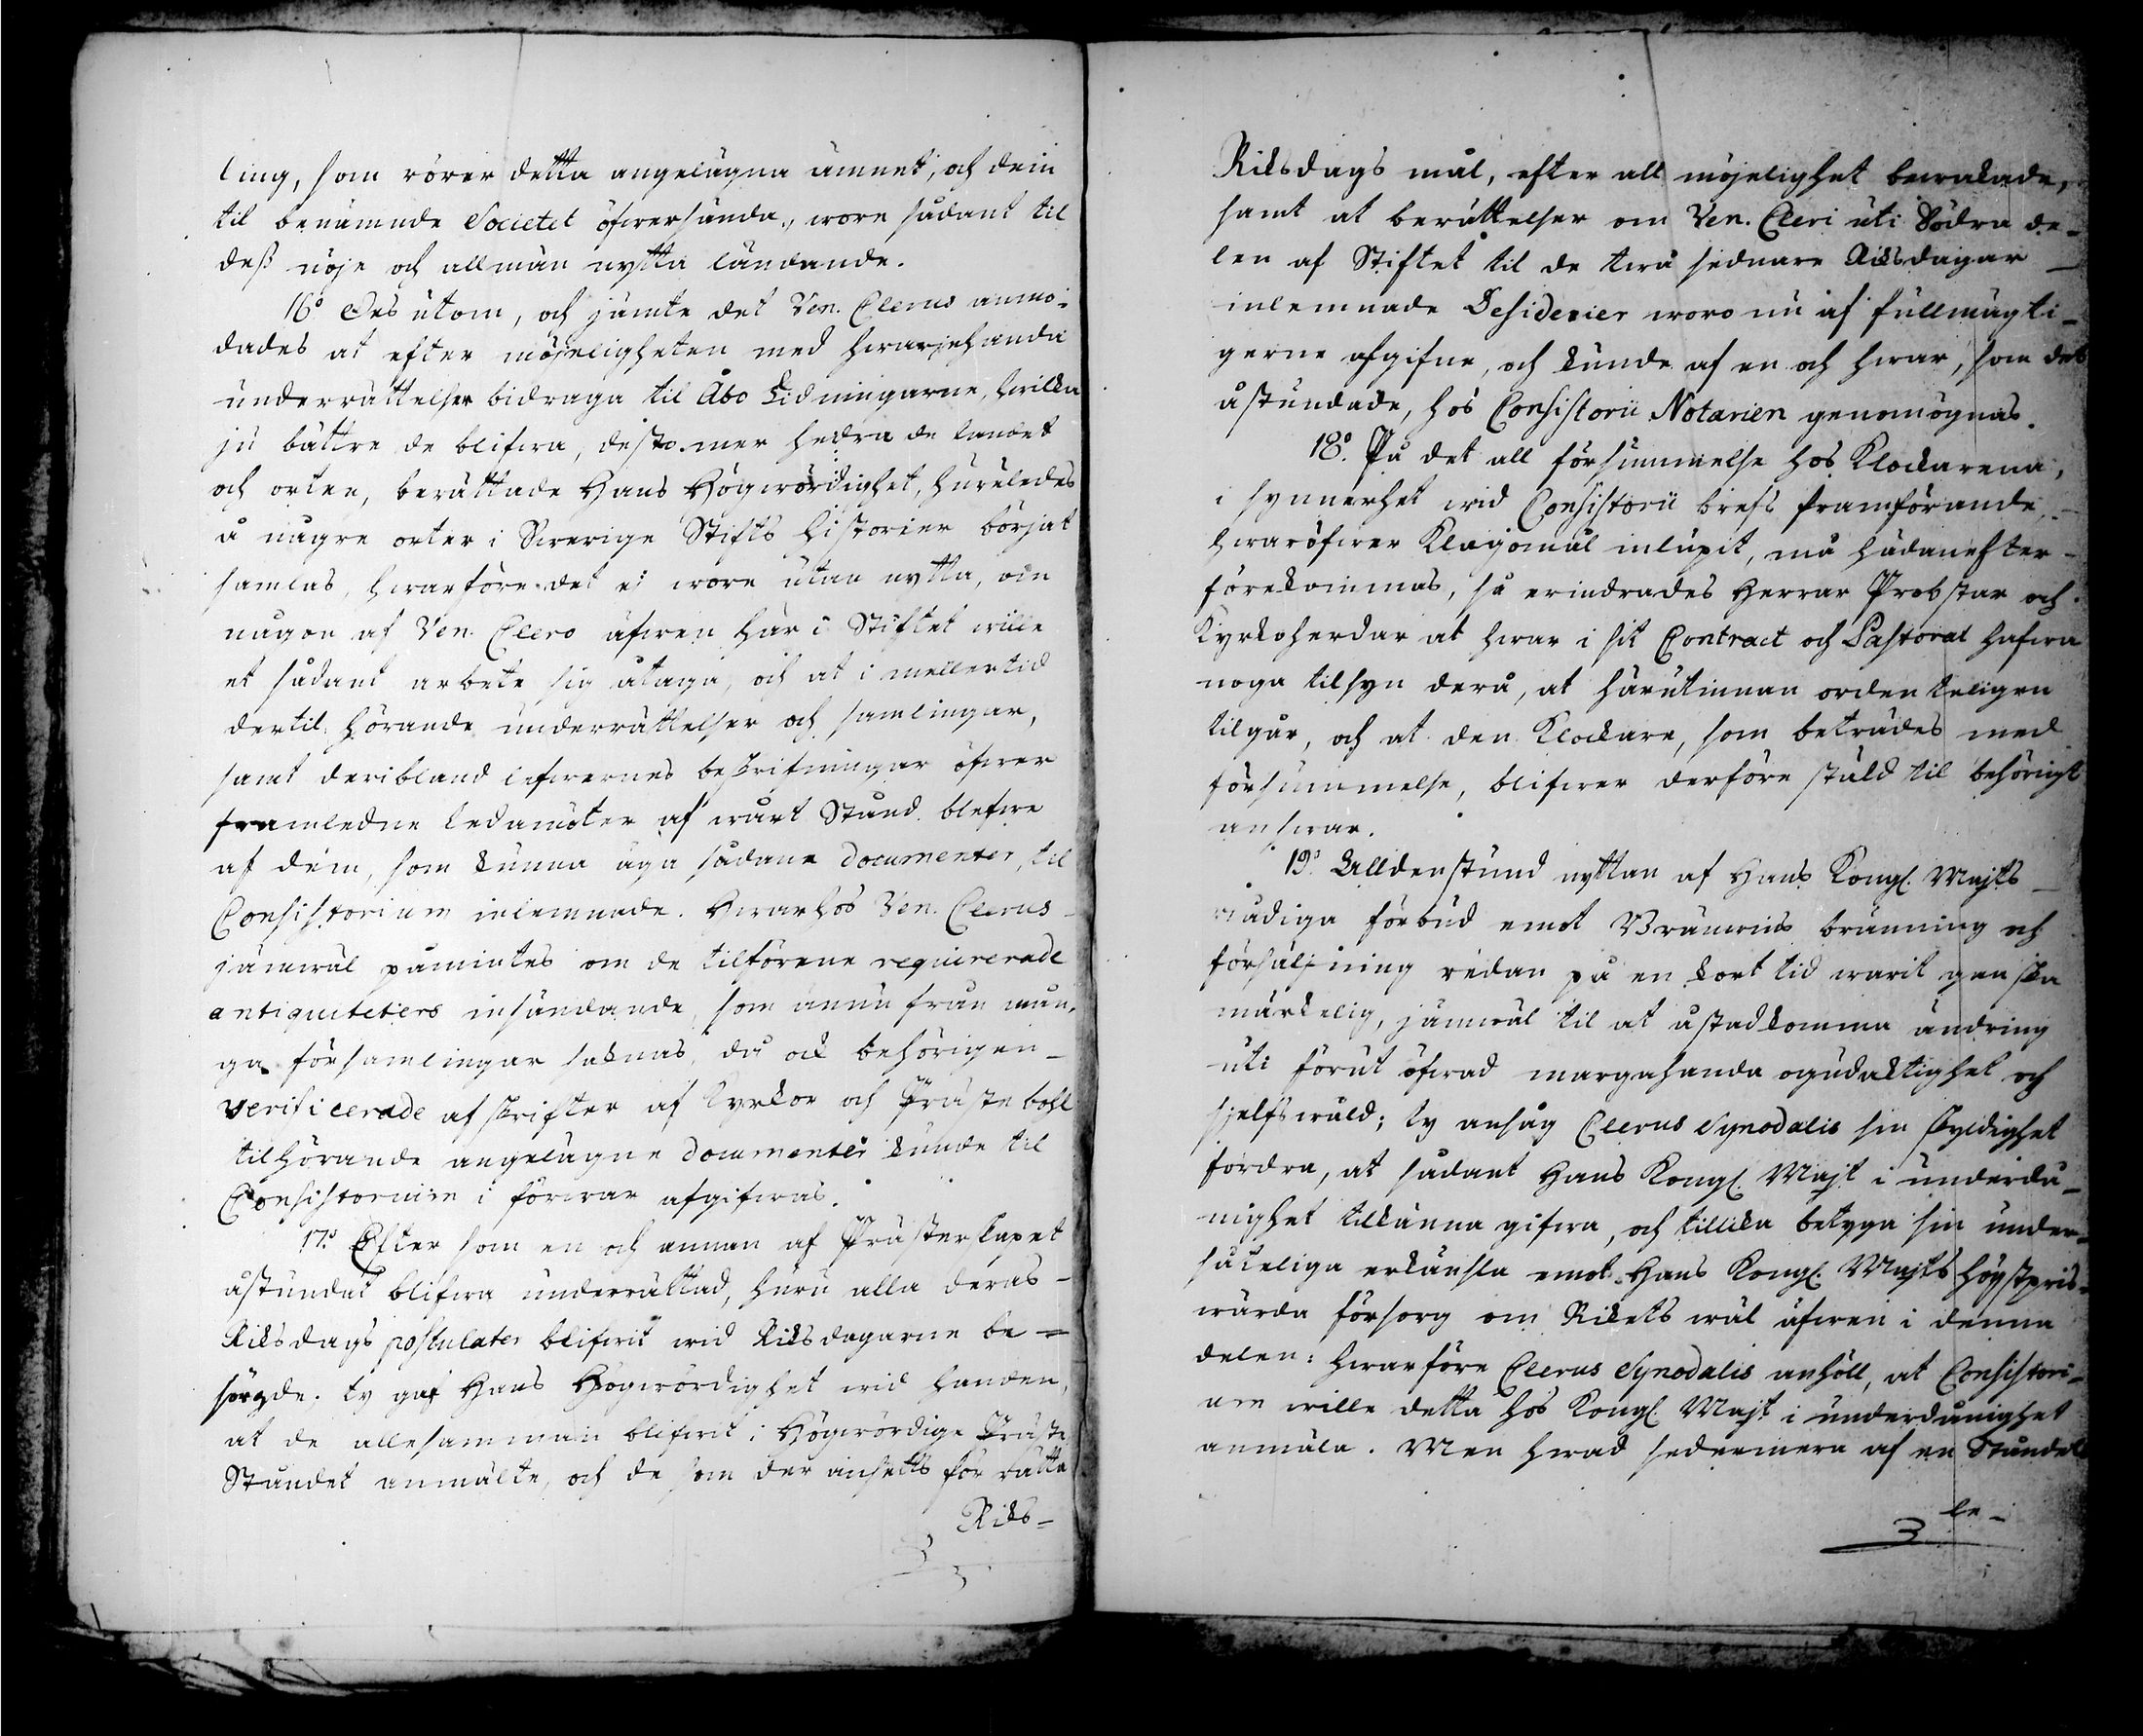 ling, som rörer detta angelägna ämnet, och dem
til benämnde Societet öfwersända, wore sådant til
deß nöje och allmän nytta ländande.
16:o Des utom, och jämte det Ven. Clerus anmo-
dades at efter möjeligheten med hwarjehanda
underrättelser bidraga til Åbo Tidningarne, hwilka
ju bättre de blifwa, desto mer hedra de landet
och orten, berättade Hans Högwördighet, huruledes
å någre orter i Swerige Stifts historier börjat
samlas, hwarföre det ej wore utan nytta, om
någon af Ven. Clero äfwen här i Stiftet wille
et sådant arbete sig åtaga, och at i mellertid
dertil hörande underrättelser och samlingar,
samt deribland lefwernes beskrifningar öfwer
framledne ledamöter af wårt Stånd blefwe
af dem, som kunna äga sådane documenter, til
Consistorium inlemnade. Hwarhos Ven. Clerus
jämwäl påmintes om de tilförene requirerade
antiquiteters insändande, som ännu från mån-
ga församlingar saknas, då ock behörigen
verificerade afskrifter af kyrkor och Prästebohl
tilhörande angelägne documenter kunde til
Consistorium i förwar afgifwas.
17:o Efter som en och annan af Prästerskapet
åstundat blifwa underrättad, huru alla deras
Riksdags postulater blifwit wid Riksdagarne be-
sörgde. ty gaf Hans Högwördighet wid handen,
at de allesamman blifwit i Högwördige Präste
Ståndet anmälte, och de som der ansetts för rätta
Riks-
Riksdags mål, efter all möjelighet bewakade,
samt at berättelser om Ven. Cleri uti Södra de-
len af Stiftet til de twå sednare Riksdagar
inlemnade Desiderier woro nu af fullmägti-
gerne afgifne, och kunde af en och hwar, som det
åstundade, hos Consistorii Notarien genomögnas.
18:o På det all försummelse hos Klockarena,
i synnerhet wid Consistorii brefs framförande,
hwaröfwer Klagomål inlupit, må hädanefter
förekommas, så erindrades Herrar Probstar och
Kyrkoherdar at hwar i sit Contract och Pastorat hafwa
noga tilsyn derå, at härutinnan ordenteligen
tilgår, och at den Klockare, som beträdes med
försummelse, blifwer derföre stäld til behörigt
answar.
19:o Alldenstund nyttan af Hans Kongl. Majts
nådiga förbud emot Bränwins bränning och
försäljning redan på en kort tid warit ganska
märkelig, jämwäl til at åstadkomma ändring
uti förut öfwad margahanda ogudaktighet och
sjelfswåld; ty ansåg Clerus Synodalis sin skyldighet
fordra, at sådant Hans Kongl. Majt i underdå-
nighet tilkänna gifwa, och tillika betyga sin under-
såteliga erkänsla emot Hans Kongl. Majts högstpris-
wärda försorg om Rikets wäl äfwen i denna
delen: hwarföre Clerus Synodalis anhöll, at Consistori-
um wille detta hos Kongl. Majt i underdånighet
anmäla. Men hwad sedermera af en Ståndet
le-